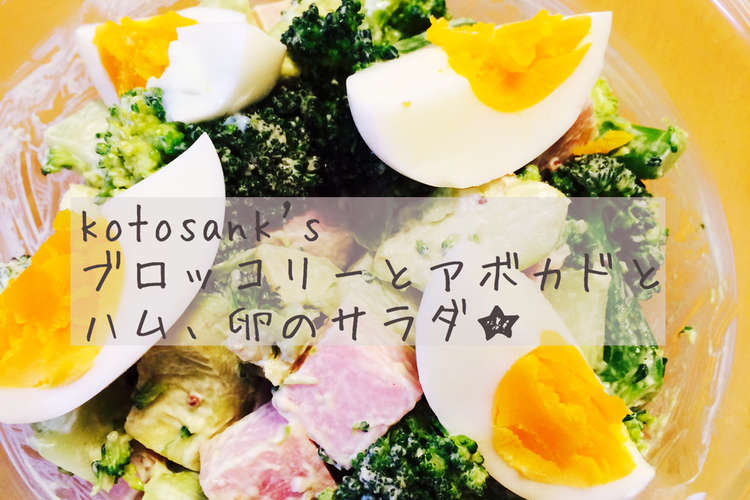 kotosank's
ブロッコリーとアボカドと
ハム、卵のサラダ★